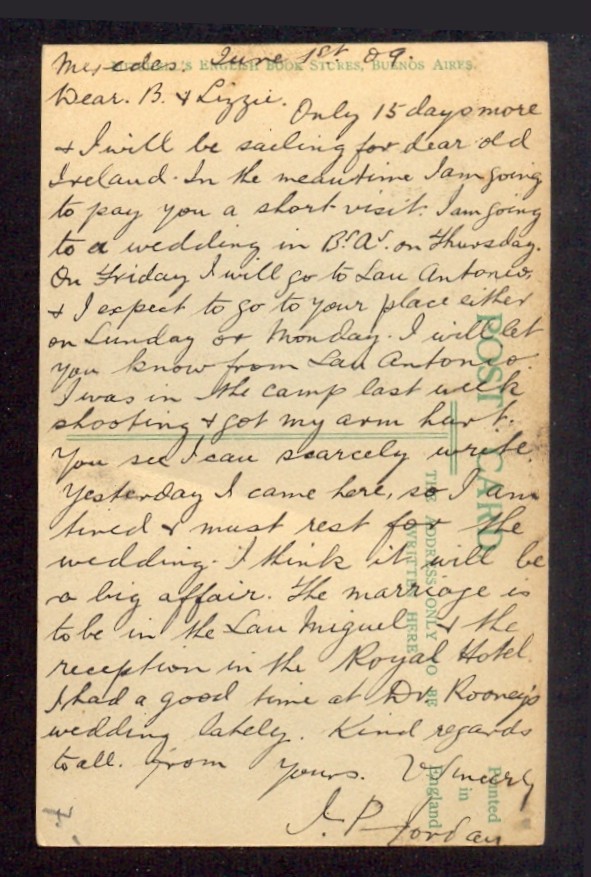 Mercedes. June 1st. 09.
'S ENGLISH BOOK STORES, BUENOS AIRES.
Dear. B. & Lizzie.
Only 15 days more
& I will be sailing for dear old
Ireland. In the meantime I am going
to pay you a short visit. I am going
to a wedding in Bs. As. on Thursday.
On Friday I will go to San Antonio,
& I expect to go to your place either
on Sunday or Monday. I will let
you know from San Antonio.
I was in the camp last week
shooting & got my arm hurt.
You see I can scarcely write.
Yesterday I came here, so I am
tired & must rest for the
wedding. I think it will be
a big affair. The marriage is
to be in the San Miguel & the
reception in the Royal Hotel.
I had a good time at Dr. Rooney's
wedding lately. Kind regards
to all. From yours. V Sincerly
J. P. Jordan
POST CARD
THE ADDRESS ONLY TO BE
WRITTEN HERE
Printed
in
England